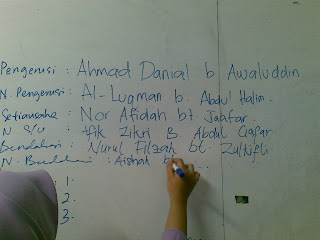 Pengerusi : Ahmad Danial b Awaluddin
N. Pengerusi : Al-Luqman b. Abdul Halim.
Setiausaha : Nor Afidah bt. Jaafar.
N S/U : Zikri B Abdul Gapar
Bendahari : Nurul Filzah bt. Zulkifli
N. : Aishah bt
1.
2.
3.